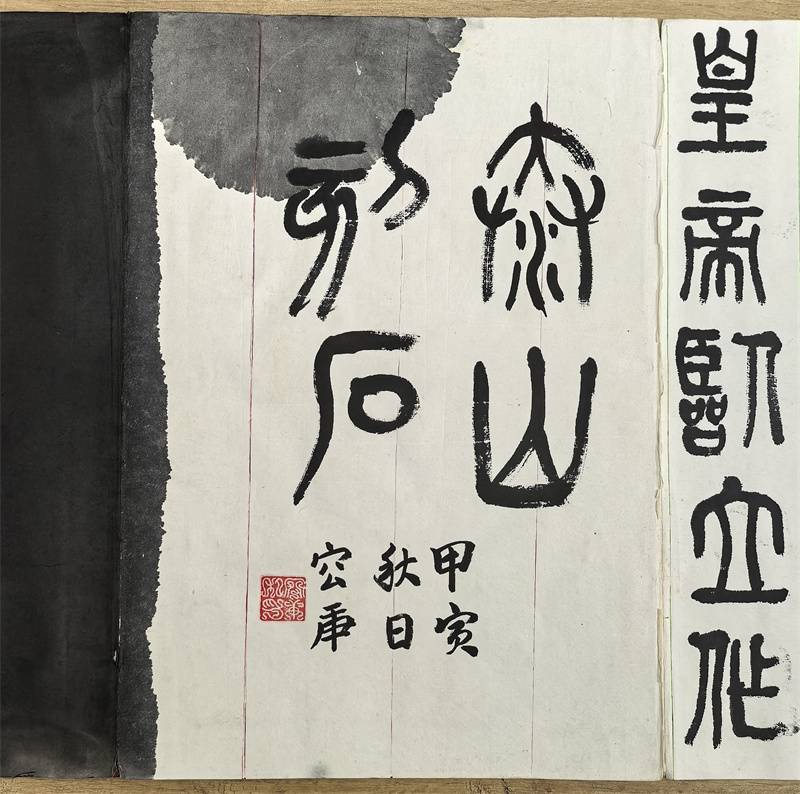 皇帝臨立作
泰山
刻石
甲寅
秋日
容庚